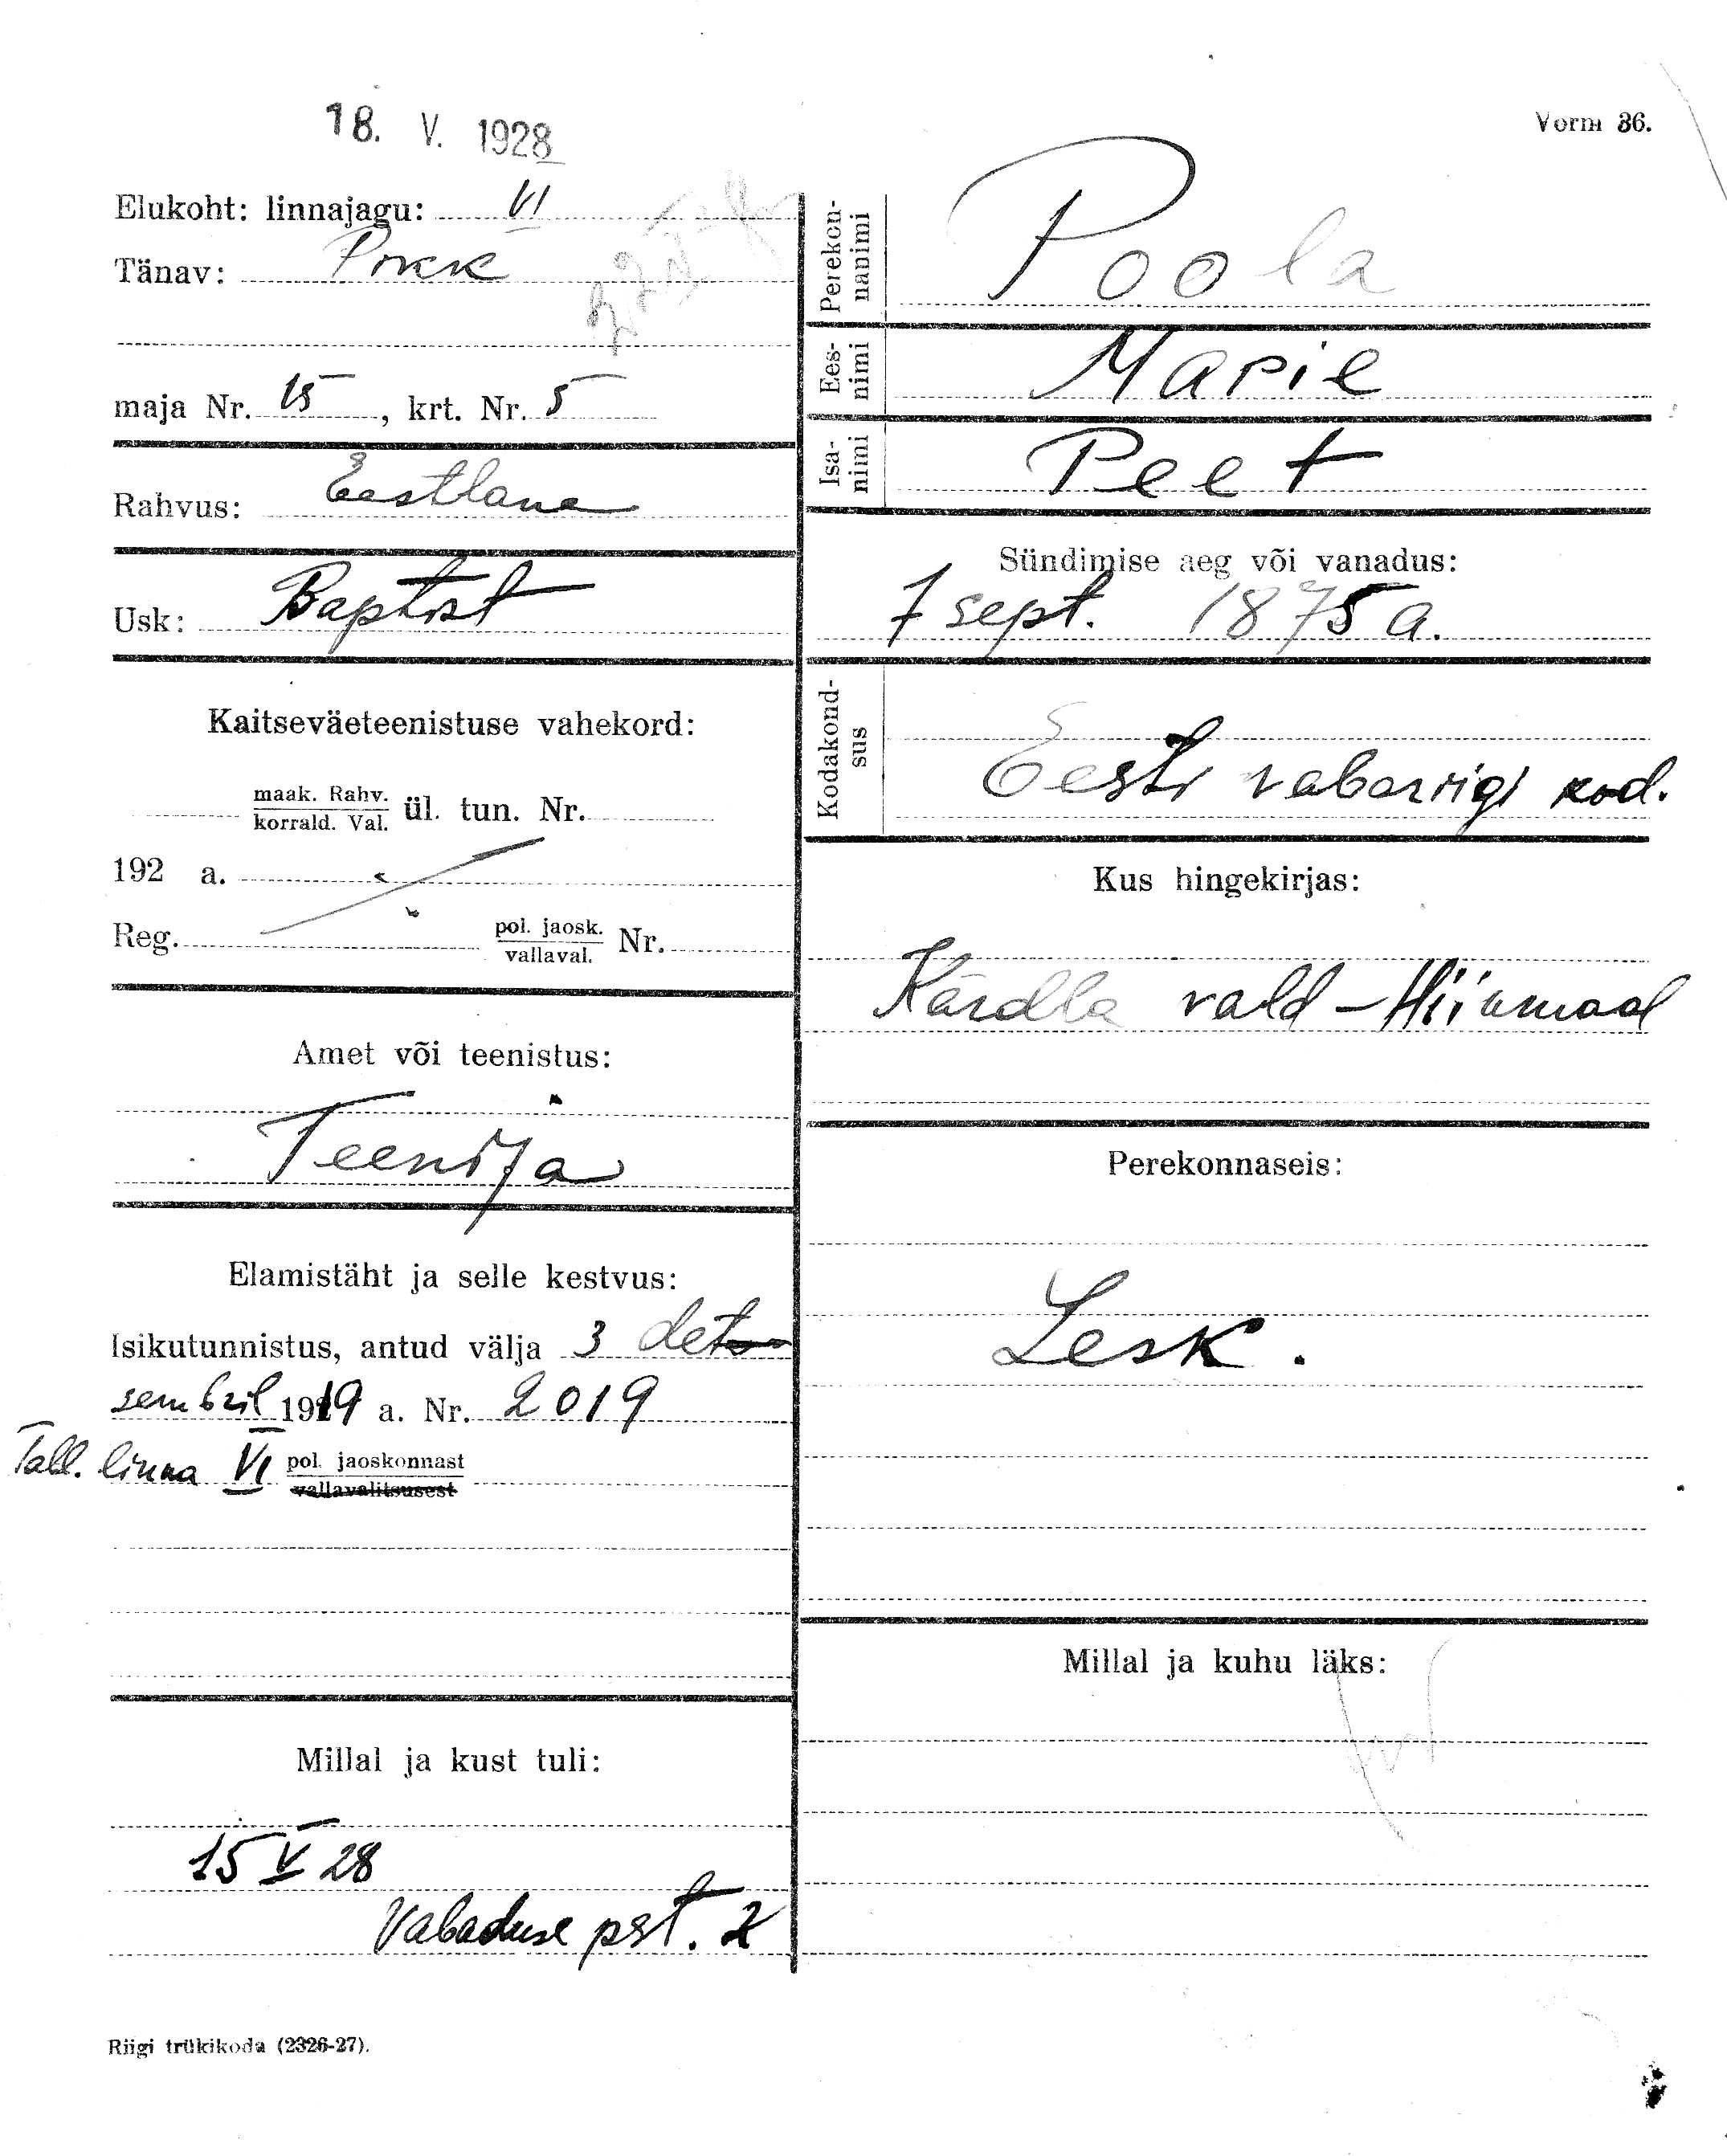 18. V. 1928
Vorm 36.
Elukoht: linnajagu: VI
Tänav:
maja Nr. 15, krt. Nr. 5
Rahvus: Eestlane
Usk: Baptist
Kaitseväeteenistuse vahekord:
maak. Rahv.
korrald. Val. ül. tun. Nr.
192 a.
Reg. pol. jaosk.
vallaval. Nr.
Amet või teenistus:
Teenija
Elamistäht ja selle kestvus:
Isikutunnistus, antud välja 3 det-
sembril 1919 a. Nr. 2019
Tall. linna VI pol. jaoskonnast
vallavalitsusest
Millal ja kust tuli:
15 V 28
Vabaduse pst. 2
Riigi trükikoda (2326-27).
Perekon-
nanimi Poola
Ees-
nimi Marie
Isa-
nimi Peet
Sündimise aeg või vanadus:
7 sept. 1875 a.
Kodakond-
sus Eesti vabariigi kod.
Kus hingekirjas:
Kärdla vald - Hiiumaal
Perekonnaseis:
Lesk.
Millal ja kuhu läks: